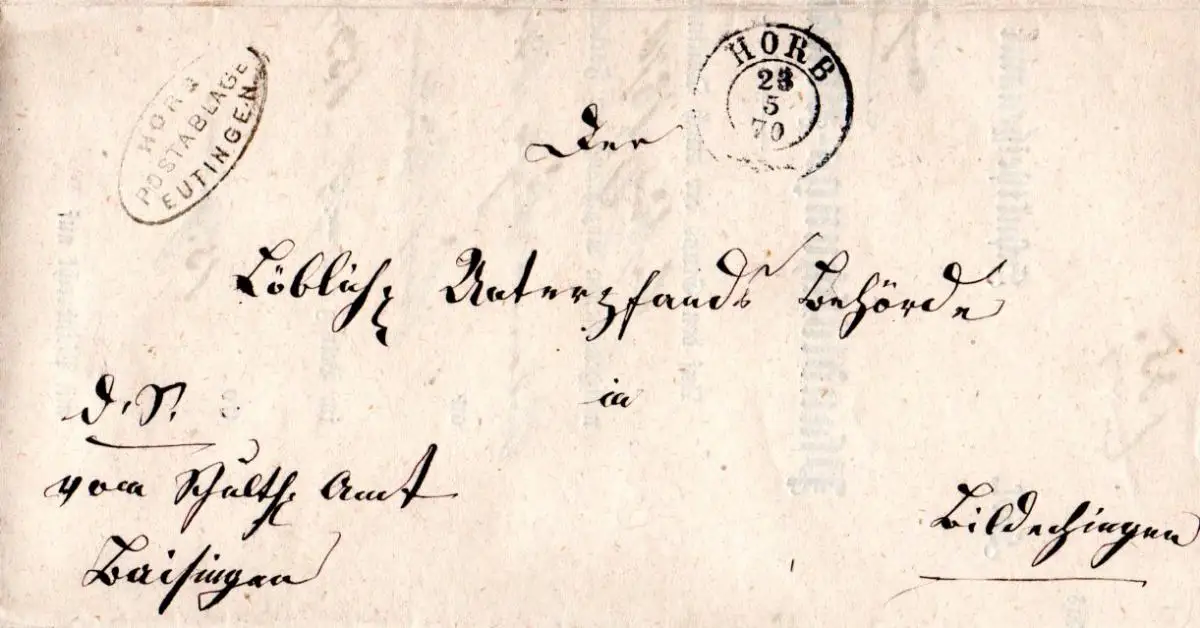 HORB
POSTABLAGE
EUTINGEN
HORB
23
5
70
Der
Löbliche Unterpfands Behörde
in
d. S.
vom Schulth. Amt
Baisingen
Bildechingen